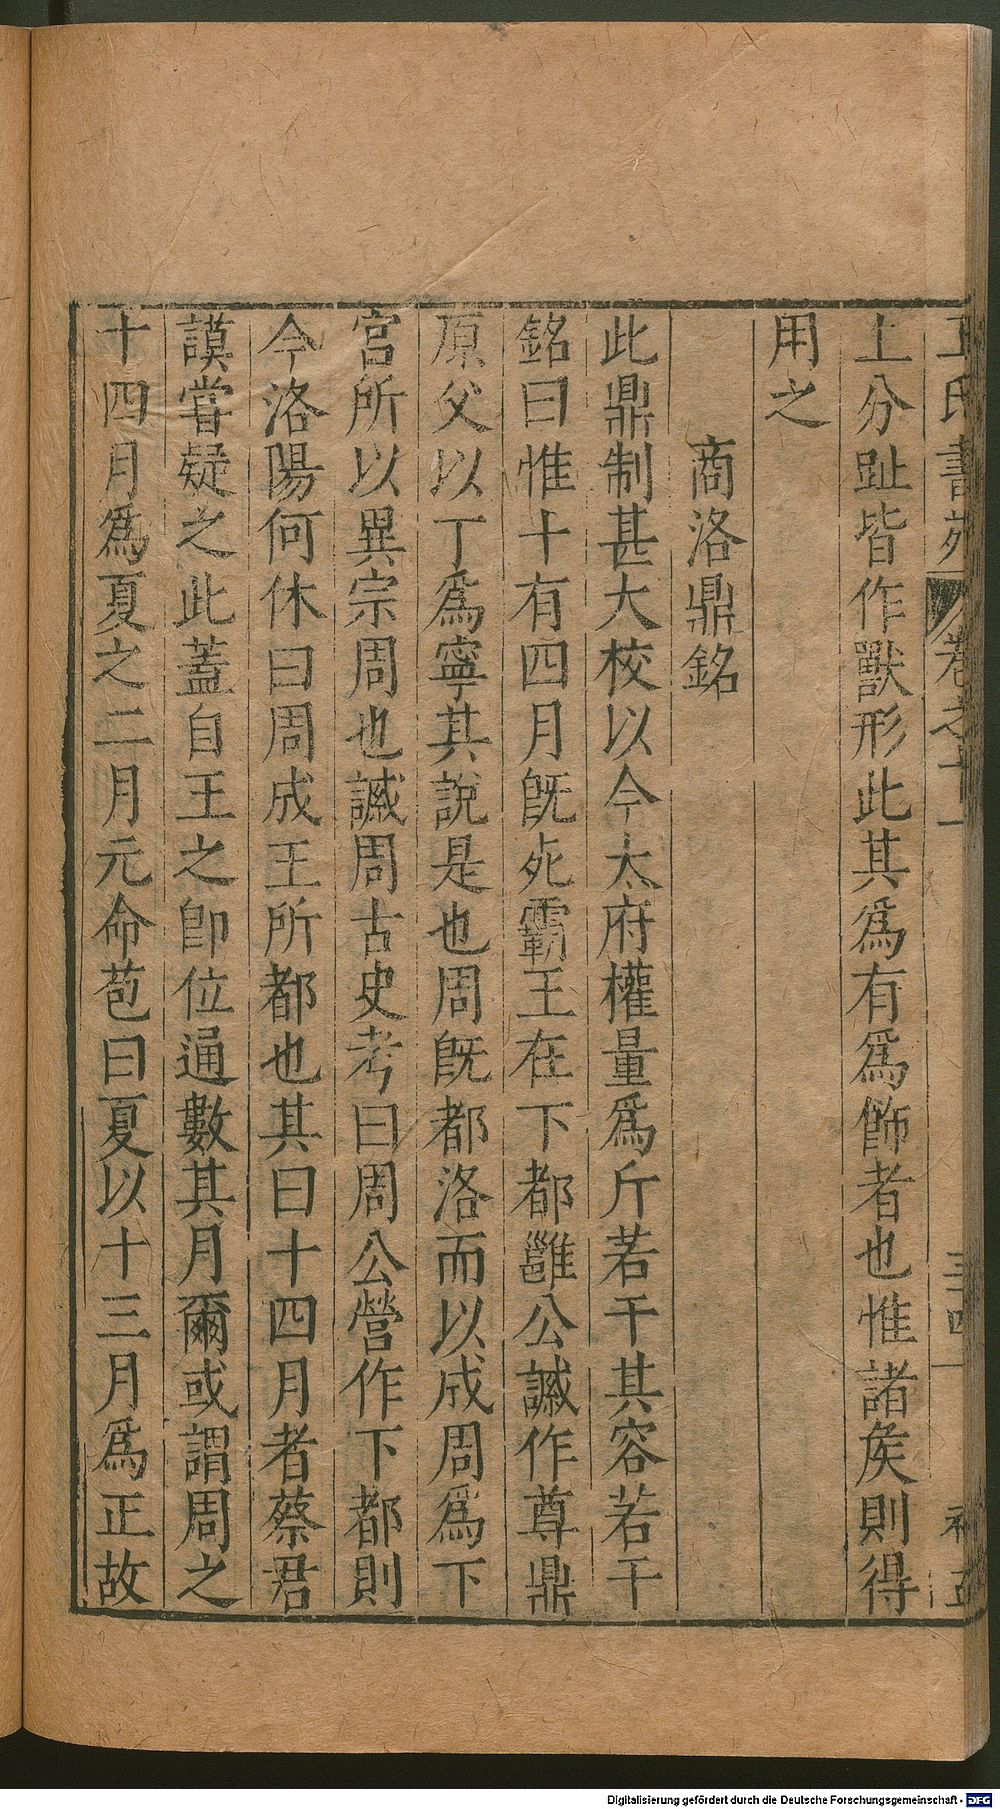 王氏書苑 卷之十一 三十四 補五
上分趾皆作獸形此其為有為飾者也惟諸矦則得
用之
商洛鼎銘
此鼎制甚大校以今太府權量爲斤若干其容若干
銘曰惟十有四月旣死霸王在下都雝公諴作尊鼎
原父以丁爲寧其說是也周旣都洛而以成周爲下
宮所以異宗周也諴周古史考曰周公營作下都則
今洛陽何休曰周成王所都也其曰十四月者蔡君
謨嘗疑之此蓋自王之卽位通數其月爾或謂周之
十四月爲夏之二月元命苞曰夏以十三月爲正故
Digitalisierung gefördert durch die Deutsche Forschungsgemeinschaft - DFG